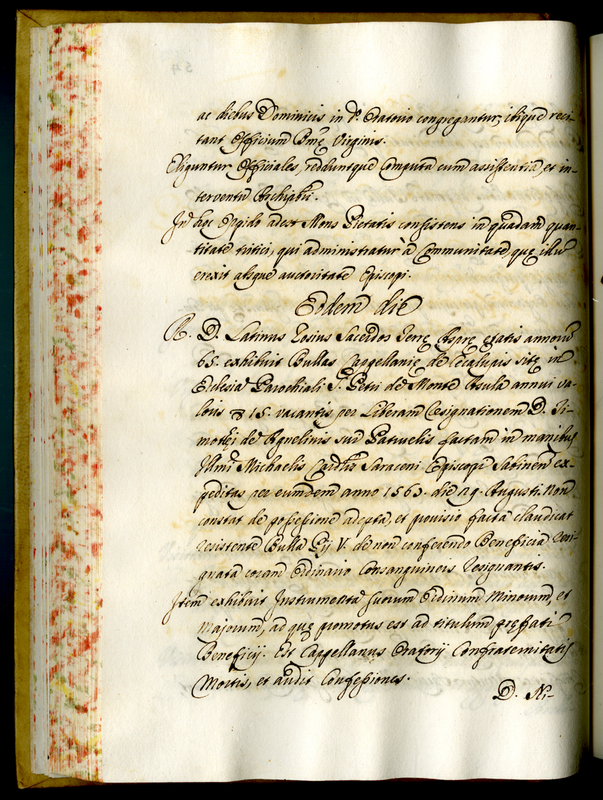 ac dictus Dominicis in d.º Oratorio congregantur, ibique reci-
tant Officium Bmę Virginis.
Eliguntur Officiales, redduntque Computa cum assistentia, et in-
terventu Archipbri.
In hoc Oppido adest Mons Pietatis consistens in quadam quan-
titate tritici, qui administratur à Communitate quę illũ
erexit absque auctoritate Episcopi.
Eodem die
R. D. Latinus Tosius Sacerdos Terrę Asprę ętatis annorũ
65. exhibuit Bullas Cappellanię de sitę in
Ecclesia Parochiali S. Petri de Monte Asula annui va-
loris 15. vacantis per Liberam Resignationem D. Ti-
mothei de Agnelinis sui Patruelis factam in manibus
Illmi Michaelis Cardlis Saraceni Episcopi Sabinen ex-
peditas per eumdem anno 1563. die 29. Augusti. Non
constat de possessione adepta, et provisio facta claudicat
resistente Bulla Pij V. de non conferendo Beneficia resi-
gnata coram Ordinario Consanguineis Resignantis.
Item exhibuit Instrumenta suorum Ordinum Minorum, et
Majorum, ad quę promotus est ad titulum pręfati
Beneficij. Est Cappellanus Oratorij Confraternitatis
Mortis, et audit Confessiones.
D. Ni-